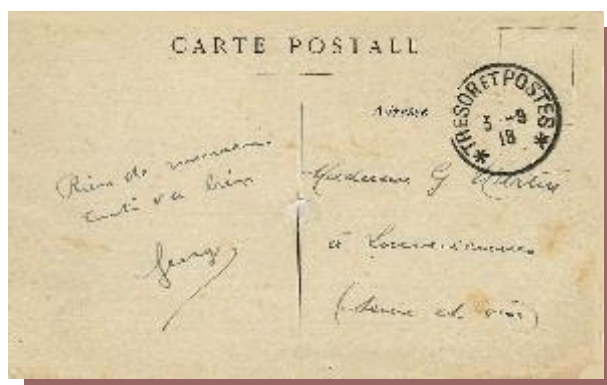 CARTE POSTALE
Adresse
TRESOR ET POSTES
3 -9
18
Rien de nouveau
tout va bien
Madame G
à
(Seine et Oise)